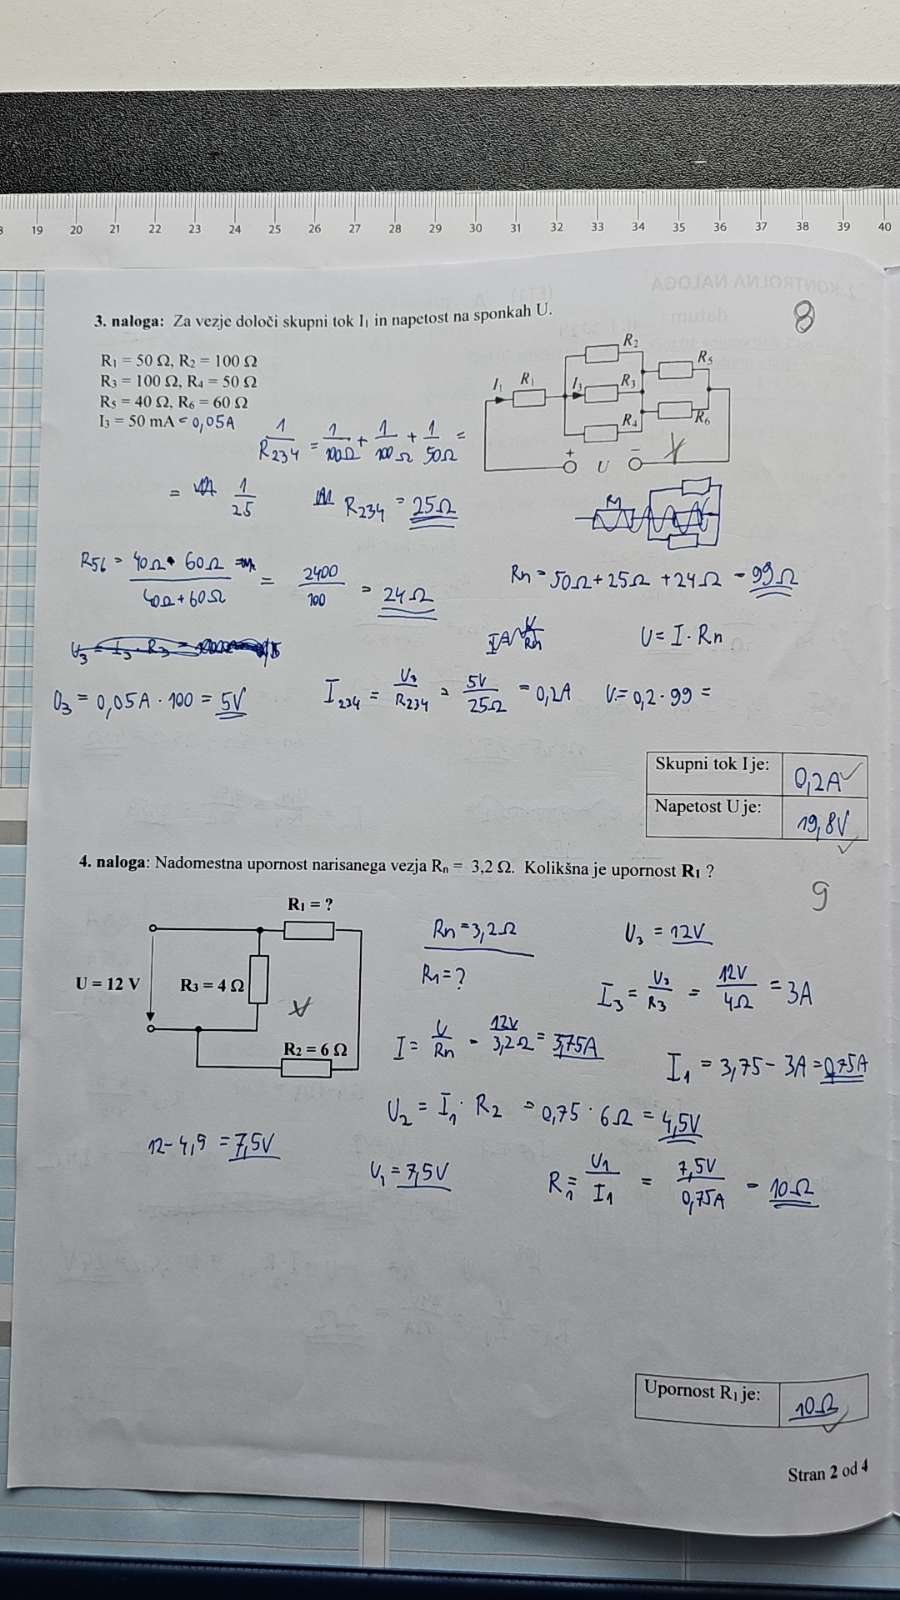 19 20 21 22 23 24 25 26 27 28 29 30 31 32 33 34 35 36 37 38 39 40
8
3. naloga: Za vezje določi skupni tok I₁ in napetost na sponkah U.
R₁ = 50 Ω, R₂ = 100 Ω
R₃ = 100 Ω, R₄ = 50 Ω
R₅ = 40 Ω, R₆ = 60 Ω
I₃ = 50 mA = 0,05A
I₁ R₁ R₂ I₃ R₃ R₄ R₅ R₆
+ U −
1/R₂₃₄ = 1/100Ω + 1/100Ω + 1/50Ω =
= 1/25 R₂₃₄ = 25Ω
R₁
R₅₆ = 40Ω · 60Ω / 40Ω + 60Ω = 2400/100 = 24Ω
Rn = 50Ω + 25Ω + 24Ω = 99Ω
U = I · Rn
U₃ = 0,05A · 100 = 5V
I₂₃₄ = U₃/R₂₃₄ = 5V/25Ω = 0,2A
U = 0,2 · 99 =
Skupni tok I je: 0,2A ✓
Napetost U je: 19,8V ✓
4. naloga: Nadomestna upornost narisanega vezja Rₙ = 3,2 Ω. Kolikšna je upornost R₁ ?
9
R₁ = ?
U = 12 V
R₃ = 4 Ω
R₂ = 6 Ω
Rn = 3,2Ω
R₁ = ?
U₃ = 12V
I₃ = U₃/R₃ = 12V/4Ω = 3A
I = U/Rn = 12V/3,2Ω = 3,75A
I₁ = 3,75 − 3A = 0,75A
U₂ = I₁ · R₂ = 0,75 · 6Ω = 4,5V
12 − 4,5 = 7,5V
U₁ = 7,5V
R₁ = U₁/I₁ = 7,5V/0,75A = 10Ω
Upornost R₁ je: 10Ω ✓
Stran 2 od 4